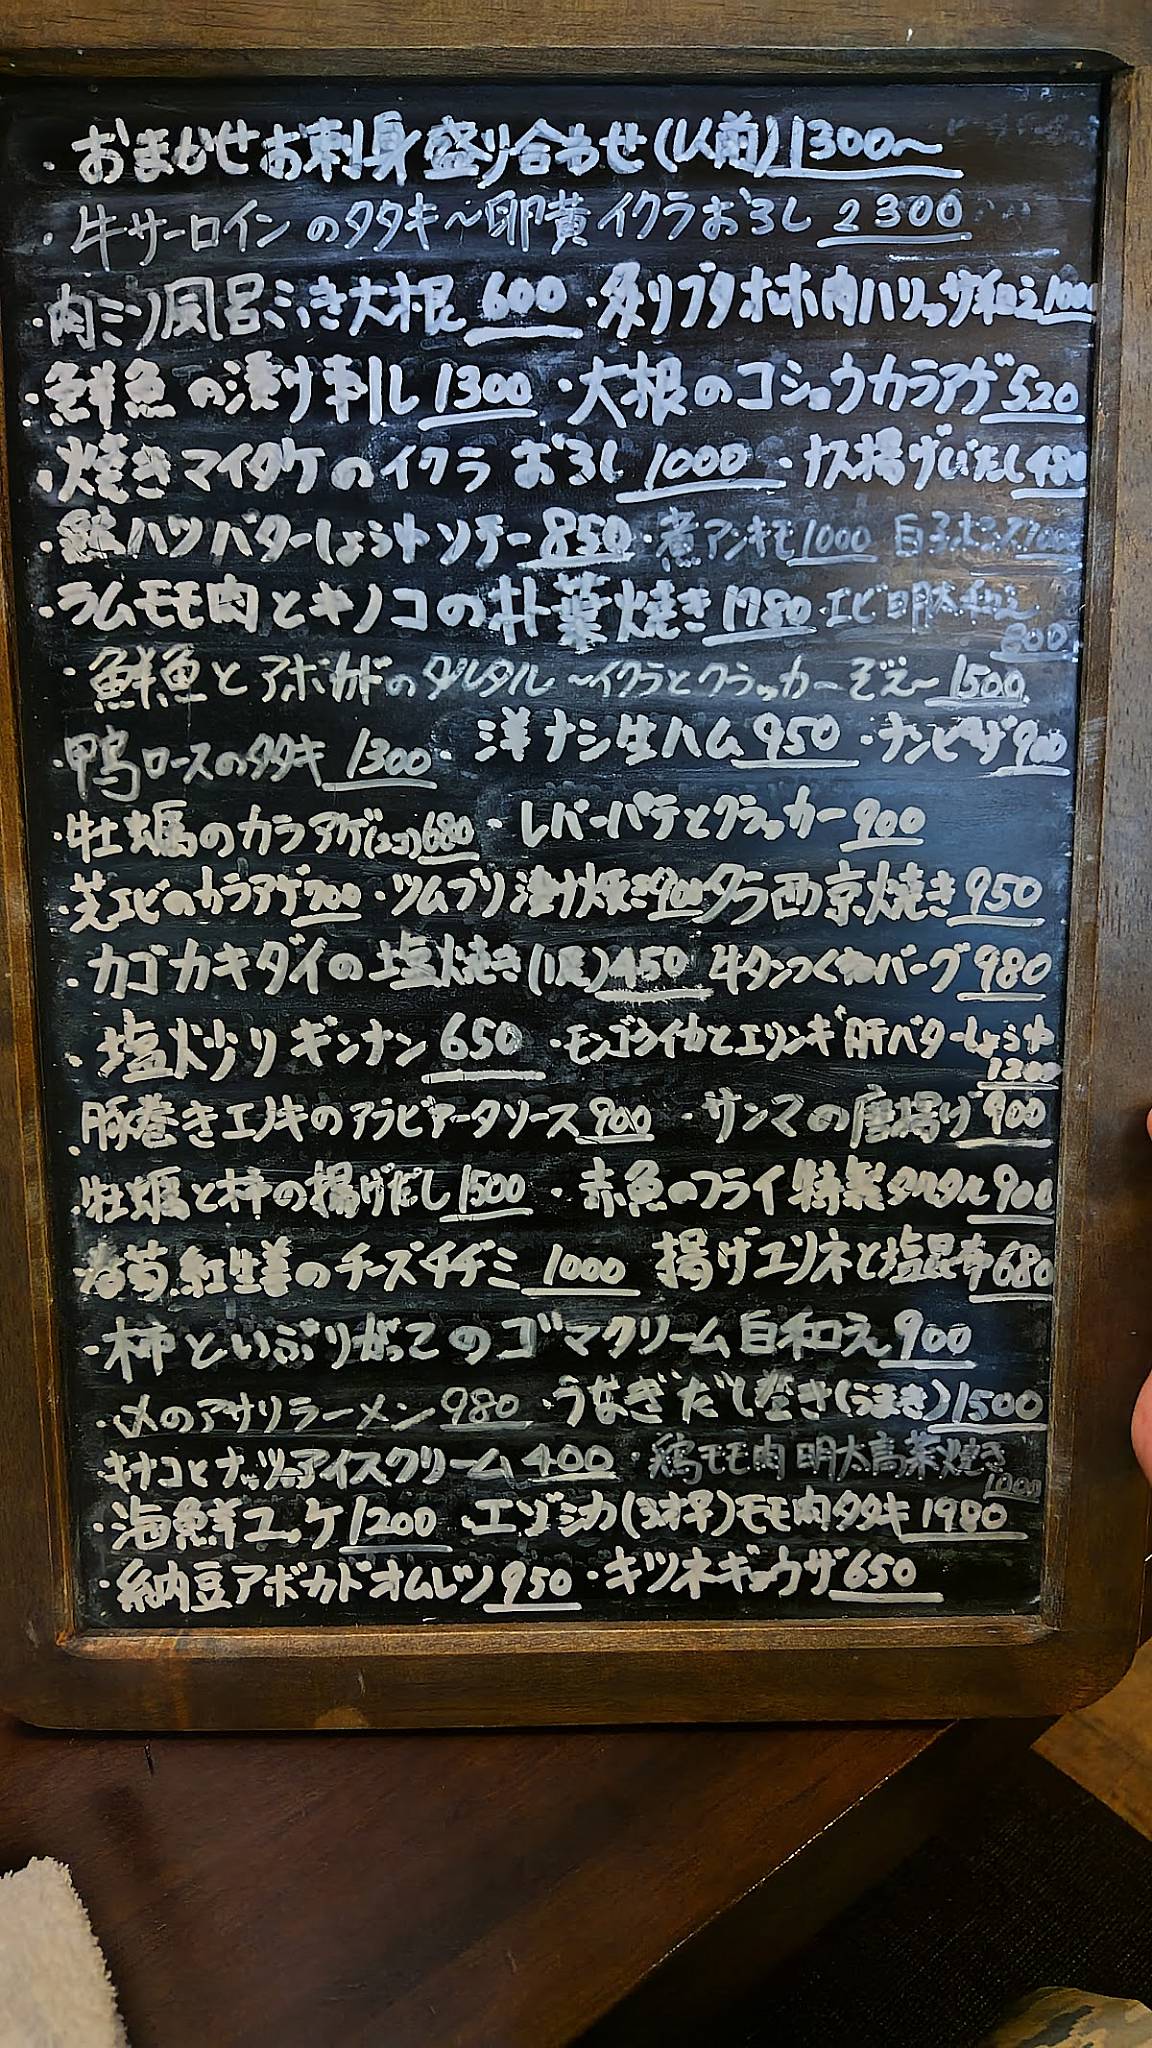 ・おまかせお刺身盛り合わせ(1人前)1300〜
・牛サーロインのタタキ〜卵黄イクラおろし 2300
・肉ミソ風呂ふき大根 600 ・炙りブタホホ肉ハリッサ和え1000
・鮮魚の漬け刺し1300 ・大根のコショウカラアゲ520
・焼きマイタケのイクラおろし1000 ・ナス揚げびたし480
・鮪ハツバターしょうゆソテー850 ・煮アンキモ1000 白子ポン
・ラムモモ肉とキノコの朴葉焼き1780 エビ明太和え
800
・鮮魚とアボカドのタルタル〜イクラとクラッカーそえ〜1500
・鴨ロースのタタキ1300 ・洋ナシ生ハム950 ・ナンピザ900
・牡蠣のカラアゲ(2コ)680 ・レバーパテとクラッカー900
・芝エビのカラアゲ700 ・ツムブリ漬け焼き900 タラ西京焼き950
・カゴカキダイの塩焼き(1尾)450 牛タンつくねバーグ980
・塩炒りギンナン650 ・モンゴウイカとエリンギ肝バターしょうゆ
1200
・豚巻きエノキのアラビアータソース900 ・サンマの唐揚げ900
・牡蠣と柿の揚げだし1500 ・赤魚のフライ特製タルタル900
春菊紅生姜のチーズチヂミ1000 揚げユリネと塩昆布680
・柿といぶりがっこのゴマクリーム白和え900
・〆のアサリラーメン980 ・うなぎだし巻き(うまき)1500
キナコとナッツのアイスクリーム400 ・鶏モモ肉明太高菜焼き
1000
・海鮮ユッケ1200 エゾシカ()モモ肉タタキ1980
・納豆アボカドオムレツ950 ・キツネギョウザ650